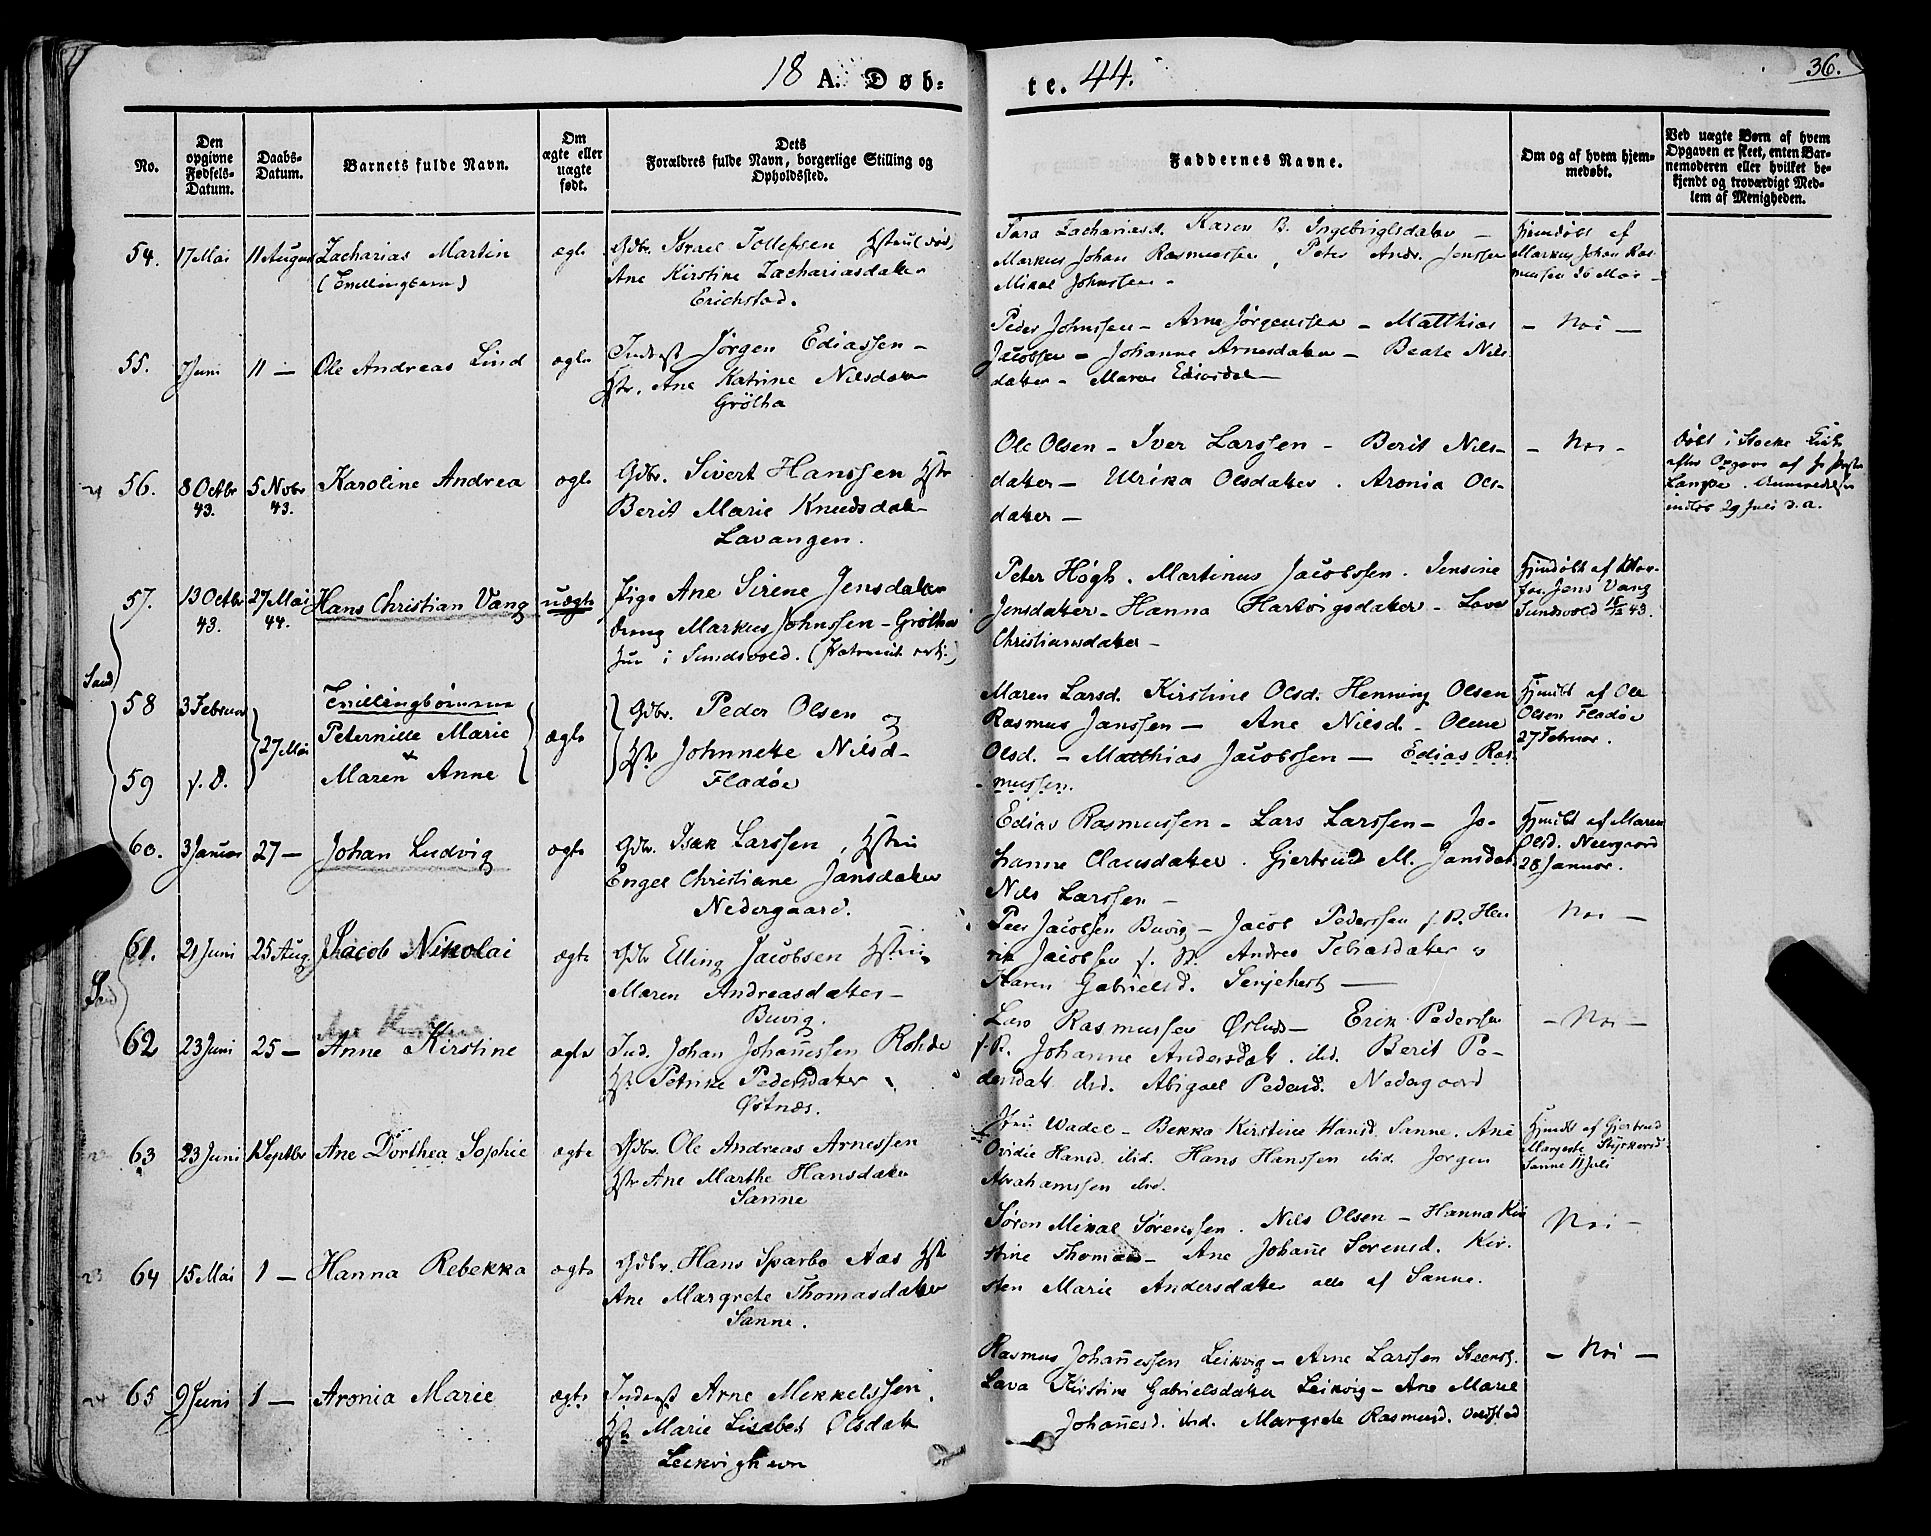 18 A. Døb=
te. 44.
36.
No.
Den opgivne Fødsels-Datum.
Daabs-Datum.
Barnets fulde Navn.
Om ægte eller uægte født.
Dets Forældres fulde Navn, borgerlige Stilling og Opholdssted.
Faddernes Navne.
Om og af hvem hjemmedøbt.
Ved uægte Børn af hvem Opgaven er skeet, enten Barnemoderen eller hvilket bekjendt og troværdigt Medlem af Menigheden.
54. 17 Mai 11 August Zacharias Martin ægte Gdbr. Israel Tollefsen
(Tvillingbarn) Ane Kirstine Zachariasdatter
Erichstad.
Sara Zachariasd. Karen B. Ingebrigtsdatter –
Markus Johan Rasmussen, Peter Andr. Jenssen
Mikal Johnssen –
Hjemdøbt af
Markus Johan Ras-
mussen 26 Mai –
55. 7 Juni 11 – Ole Andreas Lind ægte Inderst Jørgen Ediassen –
Hstr. Ane Katrine Nilsdatter
Grøtha
Peder Johnssen – Arne Jørgenssen – Matthias
Jacobsen – Johanne Arnesdatter – Beate Nils-
datter – Maren
– Nei –
56. 8 Octbr 43. 5 Novbr 43. Karoline Andrea ægte Gdbr. Sivert Hanssen Hstr
Berit Marie Knudsdatter
Lavangen.
Ole Olsen – Iver Larssen – Berit Nils-
datter – Ulrika Olsdatter. Aronia Ols-
datter –
– Nei –
Døbt i
efter Opgave af
Lampe.
29 Juli d. a.
57. 13 Octbr 43. 27 Mai 44. Hans Christian Vang uægte Pige Ane Sirene Jensdatter
Dreng Markus Johnssen – Grøtha
hun i Sundsvold.
Peter Høgh. Martinus Jacobssen. Jensine
Jensdatter – Hanna Hartvigsdatter – Lava
Christiansdatter –
Hjemdøbt af
Jens Vang
Sundsvold 43.
Sand
58 3 Februar Tvillingbørnene
Peternille Marie
59 s. D. 27 Mai Maren Anne ægte
Gdbr. Peder Olsen og
Hstr Johnnette Nilsd –
Fladøe
Maren Larsd. Kirstine Olsd. Henning Olsen
Rasmus Janssen – Ane Nilsd – Olene
Olsd. – Matthias Jacobssen – Edias Ras-
mussen.
Hjmdbt af Ole
Olsen Fladøe
27 Februar.
60. 3 Januar 27 – Johan Ludvig ægte Gdbr. Isak Larssen, Hstru
Engel Christiane Jansdatter
Nedergaard.
Edias Rasmussen – Lars Larssen – Jo-
hanne Clausdatter. Gjertrud M. Jansdatt
Nils Larssen –
Hjmdbt af Maren
Olsd. Neergaard
28 Januar.
61. 21 Juni 25 Aug. Jacob Nikolai ægte Gdbr Elling Jacobsen Hstru
Maren Andreasdatter –
Buvig.
Peer Jacobsen Buvig – Jacob Pederssen f. P. Hen-
rik Jacobsen f. P. Andrea Tobiasdatter
Karen Gabrielsd. Senjehest –
Nei –
Sand
62 23 Juni 25 – Anne Kirstine ægte Ind. Johan Johañessen Rohde
Hst. Petrine Pedersdatter
Østnæs.
Lars Rasmussen – Erik Pedersen
f. P. Johanne Andersdatt. ibd. Berit Pe-
dersdatt ibd. Abigael Pedersd. Nedergaard
– Nei –
63 23 Juni 1 Septbr Ane Dorthea Sophie ægte Gdbr. Ole Andreas Arnessen
Hstr Ane Marthe Hansdatter
Sanne
Wadel – Bekka Kirstine Hansd. Sanne. Ane
Ovidie Hansd. ibid. Hans Hanssen ibid. Jørgen
Abrahamssen ibid.
Hjmdbt af Gjertrud
Margrete
Sanne 11 Juli
23 64 15 Mai 1 – Hanna Rebekka ægte Gdbr. Hans Sparbo Aas Hst
Ane Margrete Thomasdatter
Sanne.
Søren Mikal Sørenssen. Nils Olsen – Hanna Kir-
stine Thomasd – Ane Johañe Sørensd. Kir-
sten Marie Andersdatter alle af Sanne.
Nei –
24 65 9 Juni 1 – Aronia Marie ægte Inderst Arne Mikkelssen.
Hst Marie Lisabet Olsdatt
Rasmus Johañessen Leikvig – Arne Larssen
Lava Kirstine Gabrielsdatter Leikvig – Ane Marie
Johañesd. ibid. Margrete Rasmusd.
– Nei –